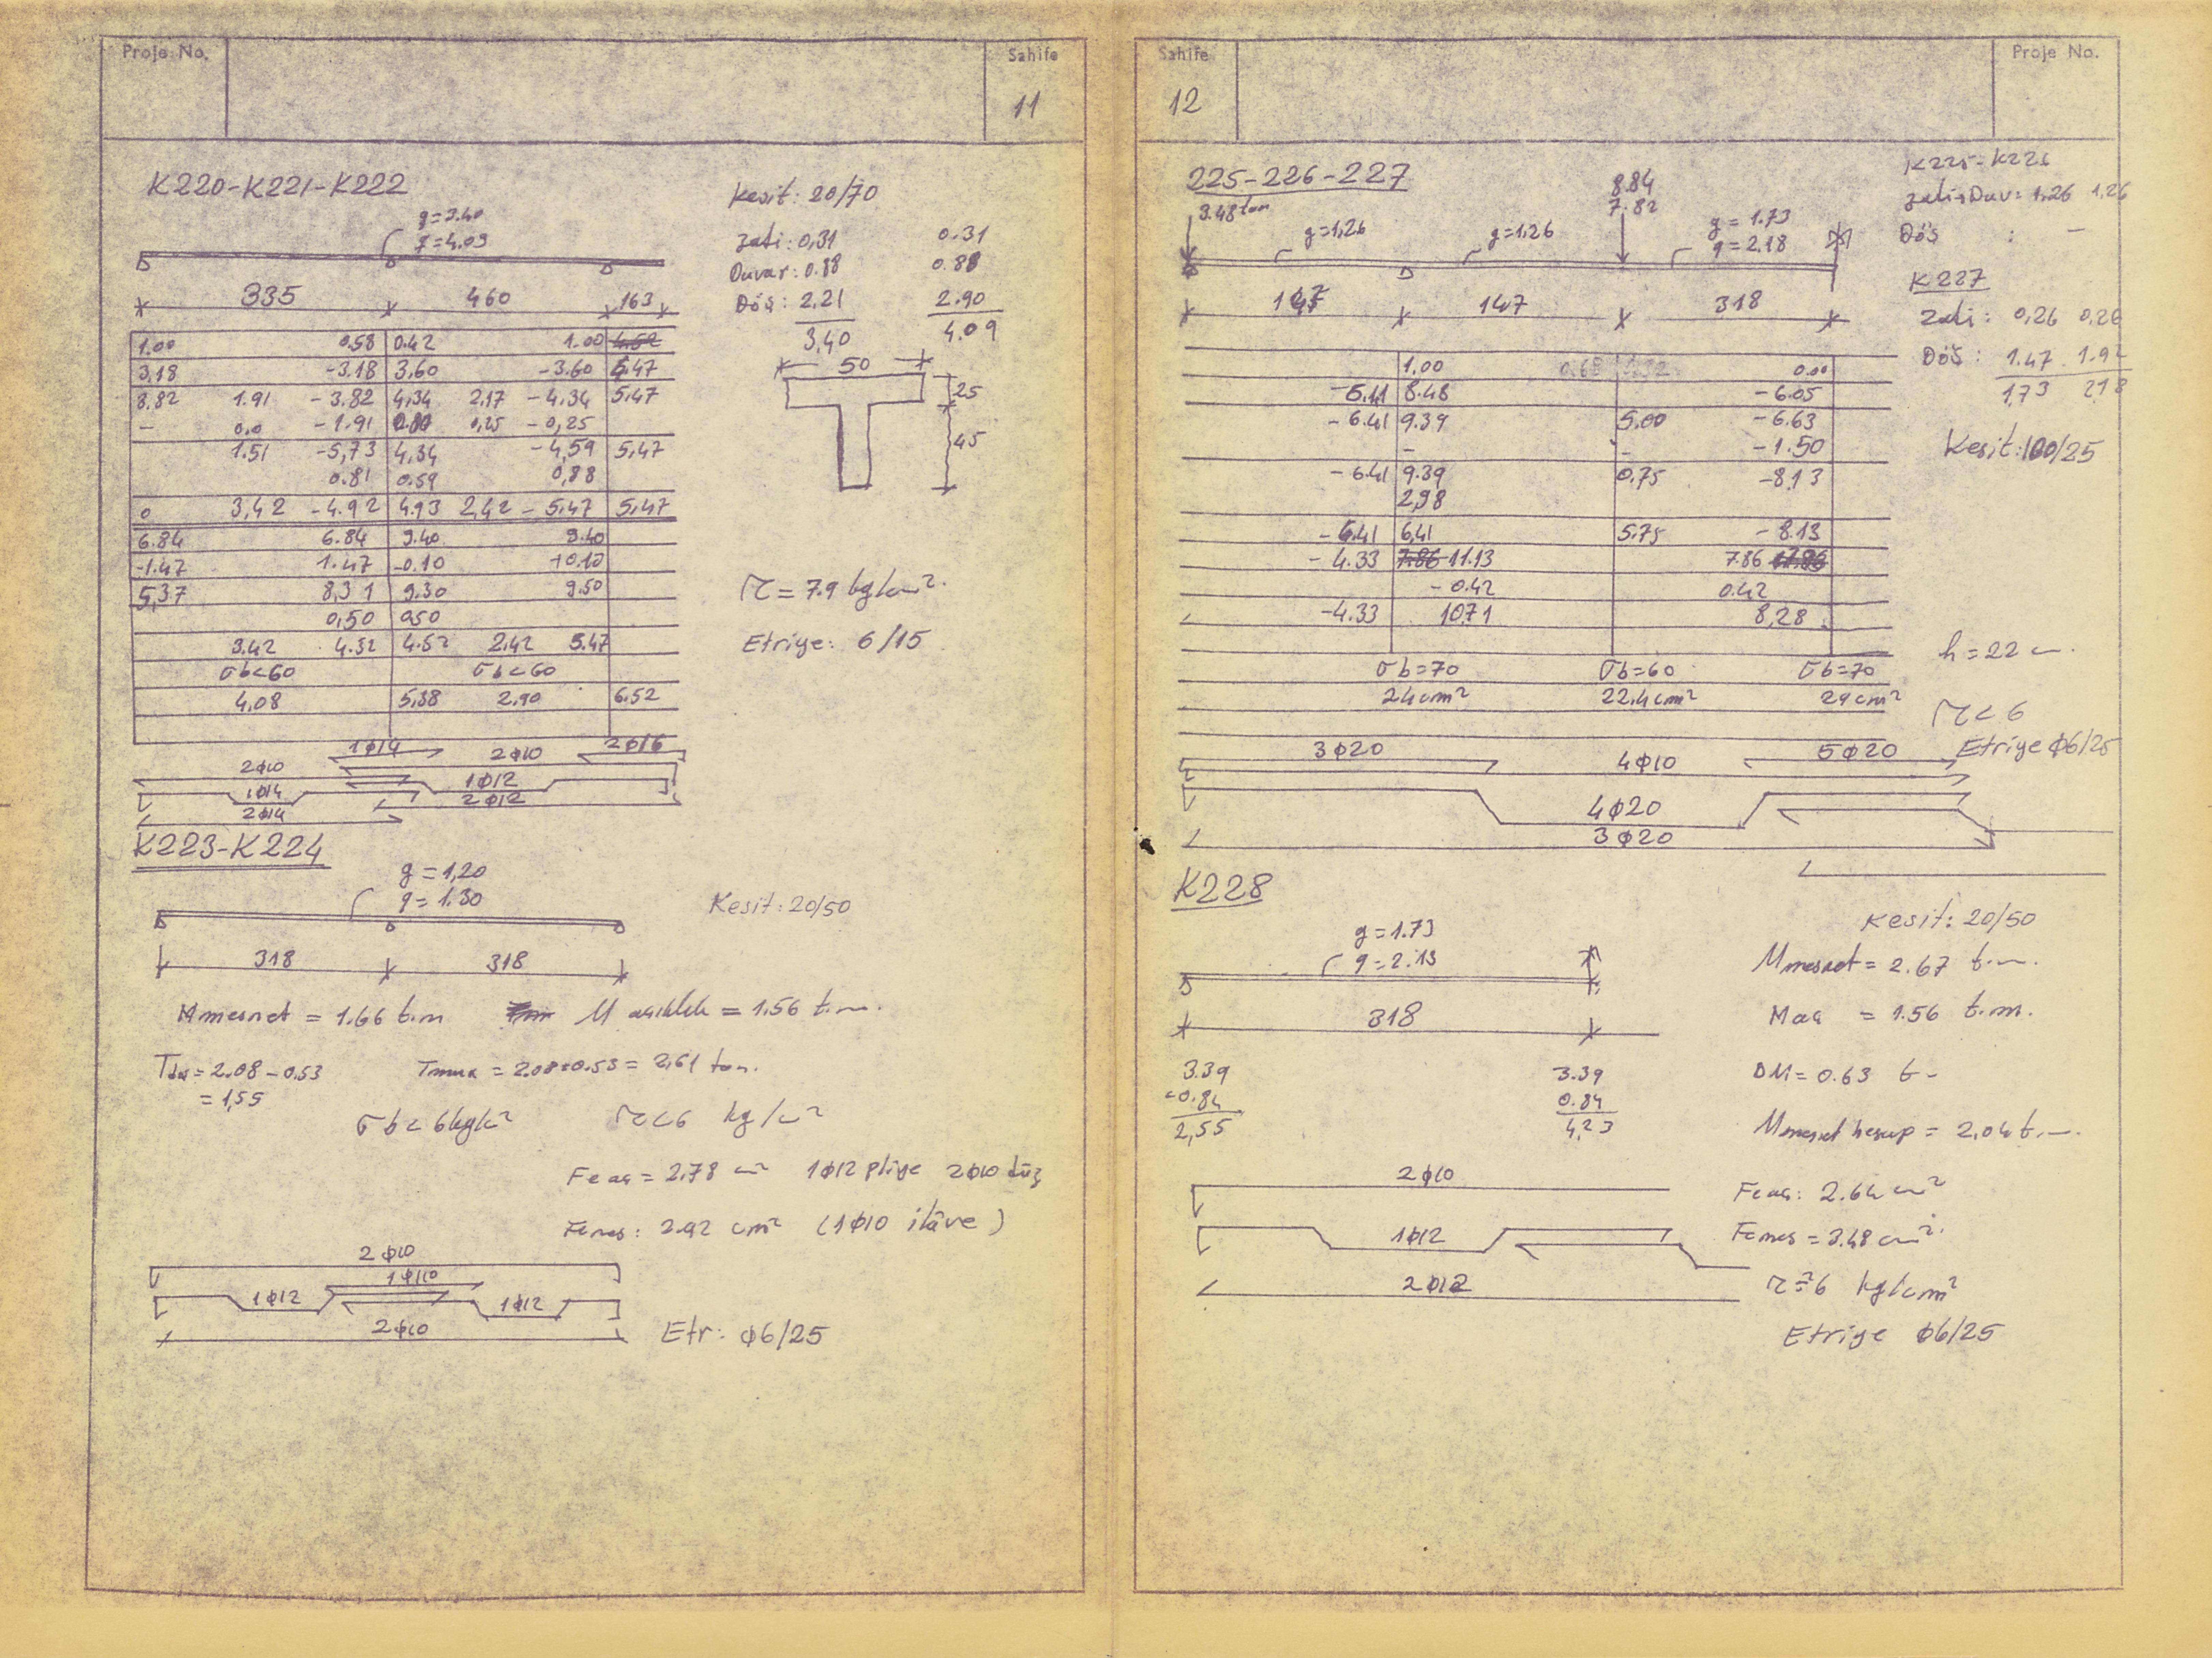 Proje No.
Sahife
11
K220-K221-K222
g=3.40
q=4.09
335 460 163
Kesit: 20/70
Zati: 0,31 0.31
Duvar: 0.88 0.88
Döş: 2,21 2.90
3,40 4.09
50
25
45
1.00 0.58 0.42 1.00
3,18 -3.18 3,60 -3.60 5.47
8,82 1.91 -3.82 4,34 2,17 -4,34 5,47
- 0.0 -1.91 0,25 -0,25
1.51 -5,73 4,34 -4,59 5,47
0.81 0.59 0,88
0 3,42 -4.92 4.93 2,42 -5,47 5,47
6.84 6.84 9.40 9.40
-1.47 1.47 -0.10 +0.10
5,37 8,31 9.30 9.50
0,50 0.50
3.42 4.32 4.52 2,42 5.47
σb<60 σb<60
4,08 5,38 2.90 6.52
τ = 7.9 kg/cm².
Etriye: 6/15
1ϕ14 2ϕ10 2ϕ16
2ϕ10
1ϕ14 1ϕ12
2ϕ14 2ϕ12
K223-K224
g=1,20
q=1.30
318 318
Kesit: 20/50
Mmesnet = 1.66 t.m M açıklık = 1.56 t.m.
= 2.08-0.53 Tmax = 2.08+0.53 = 2,61 ton.
= 1,55
τ<6 kg/cm²
Feaç = 2.78 cm² 1ϕ12 pliye 2ϕ10 düz
Femes: 2.92 cm² (1ϕ10 ilâve)
2ϕ10
1ϕ10
1ϕ12 1ϕ12
2ϕ10
Etr: ϕ6/25
Sahife
Proje No.
12
225-226-227
3.48 ton
8.84
7.82
g=1,26 g=1.26
g=1.73
q=2.18
147 147 318
K225-K226
Zati+Duv: 1.26 1,26
Döş : -
K227
Zati: 0,26 0,26
Döş: 1.47 1.92
1,73 2,18
Kesit: 100/25
1,00 0.68 0.32 0.00
8.48 -6.05
-6.41 9.39 5.00 -6.63
- - -1.50
-6.41 9.39 0.75 -8.13
2,98
-6.41 6,41 5.75 -8.13
-4.33 11.13 7.86
-0.42 0.42
-4.33 10.71 8,28
σb=70 σb=60 σb=70
24cm² 22.4cm² 29cm²
h=22 cm.
τ<6
Etriye ϕ6/25
3ϕ20 4ϕ10 5ϕ20
4ϕ20
3ϕ20
K228
g=1.73
q=2.13
318
Kesit: 20/50
Mmesnet = 2.67 t.m.
Maç = 1.56 t.m.
3.39 3.39
-0.84 0.84
2,55 4,23
ΔM = 0.63 t-
Mmesnet hesap = 2,04 t.m.
2ϕ10
1ϕ12
2ϕ12
Feaç: 2.64 cm²
Femes = 3.48 cm².
6 kg/cm²
Etriye ϕ6/25